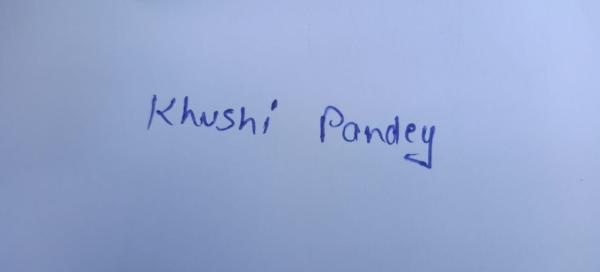 Khushi Pandey